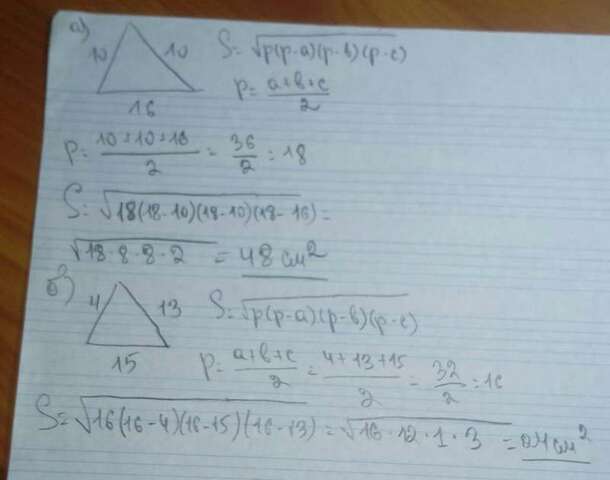 а)
10 10
16
S=√p(p-a)(p-b)(p-c)
p= a+b+c / 2
p= 10+10+16 / 2 = 36 / 2 = 18
S=√18(18-10)(18-10)(18-16) =
√18·8·8·2 = 48 см²
б)
4 13
15
S=√p(p-a)(p-b)(p-c)
p= a+b+c / 2 = 4+13+15 / 2 = 32 / 2 = 16
S=√16(16-4)(16-15)(16-13) = √16·12·1·3 = 24 см²